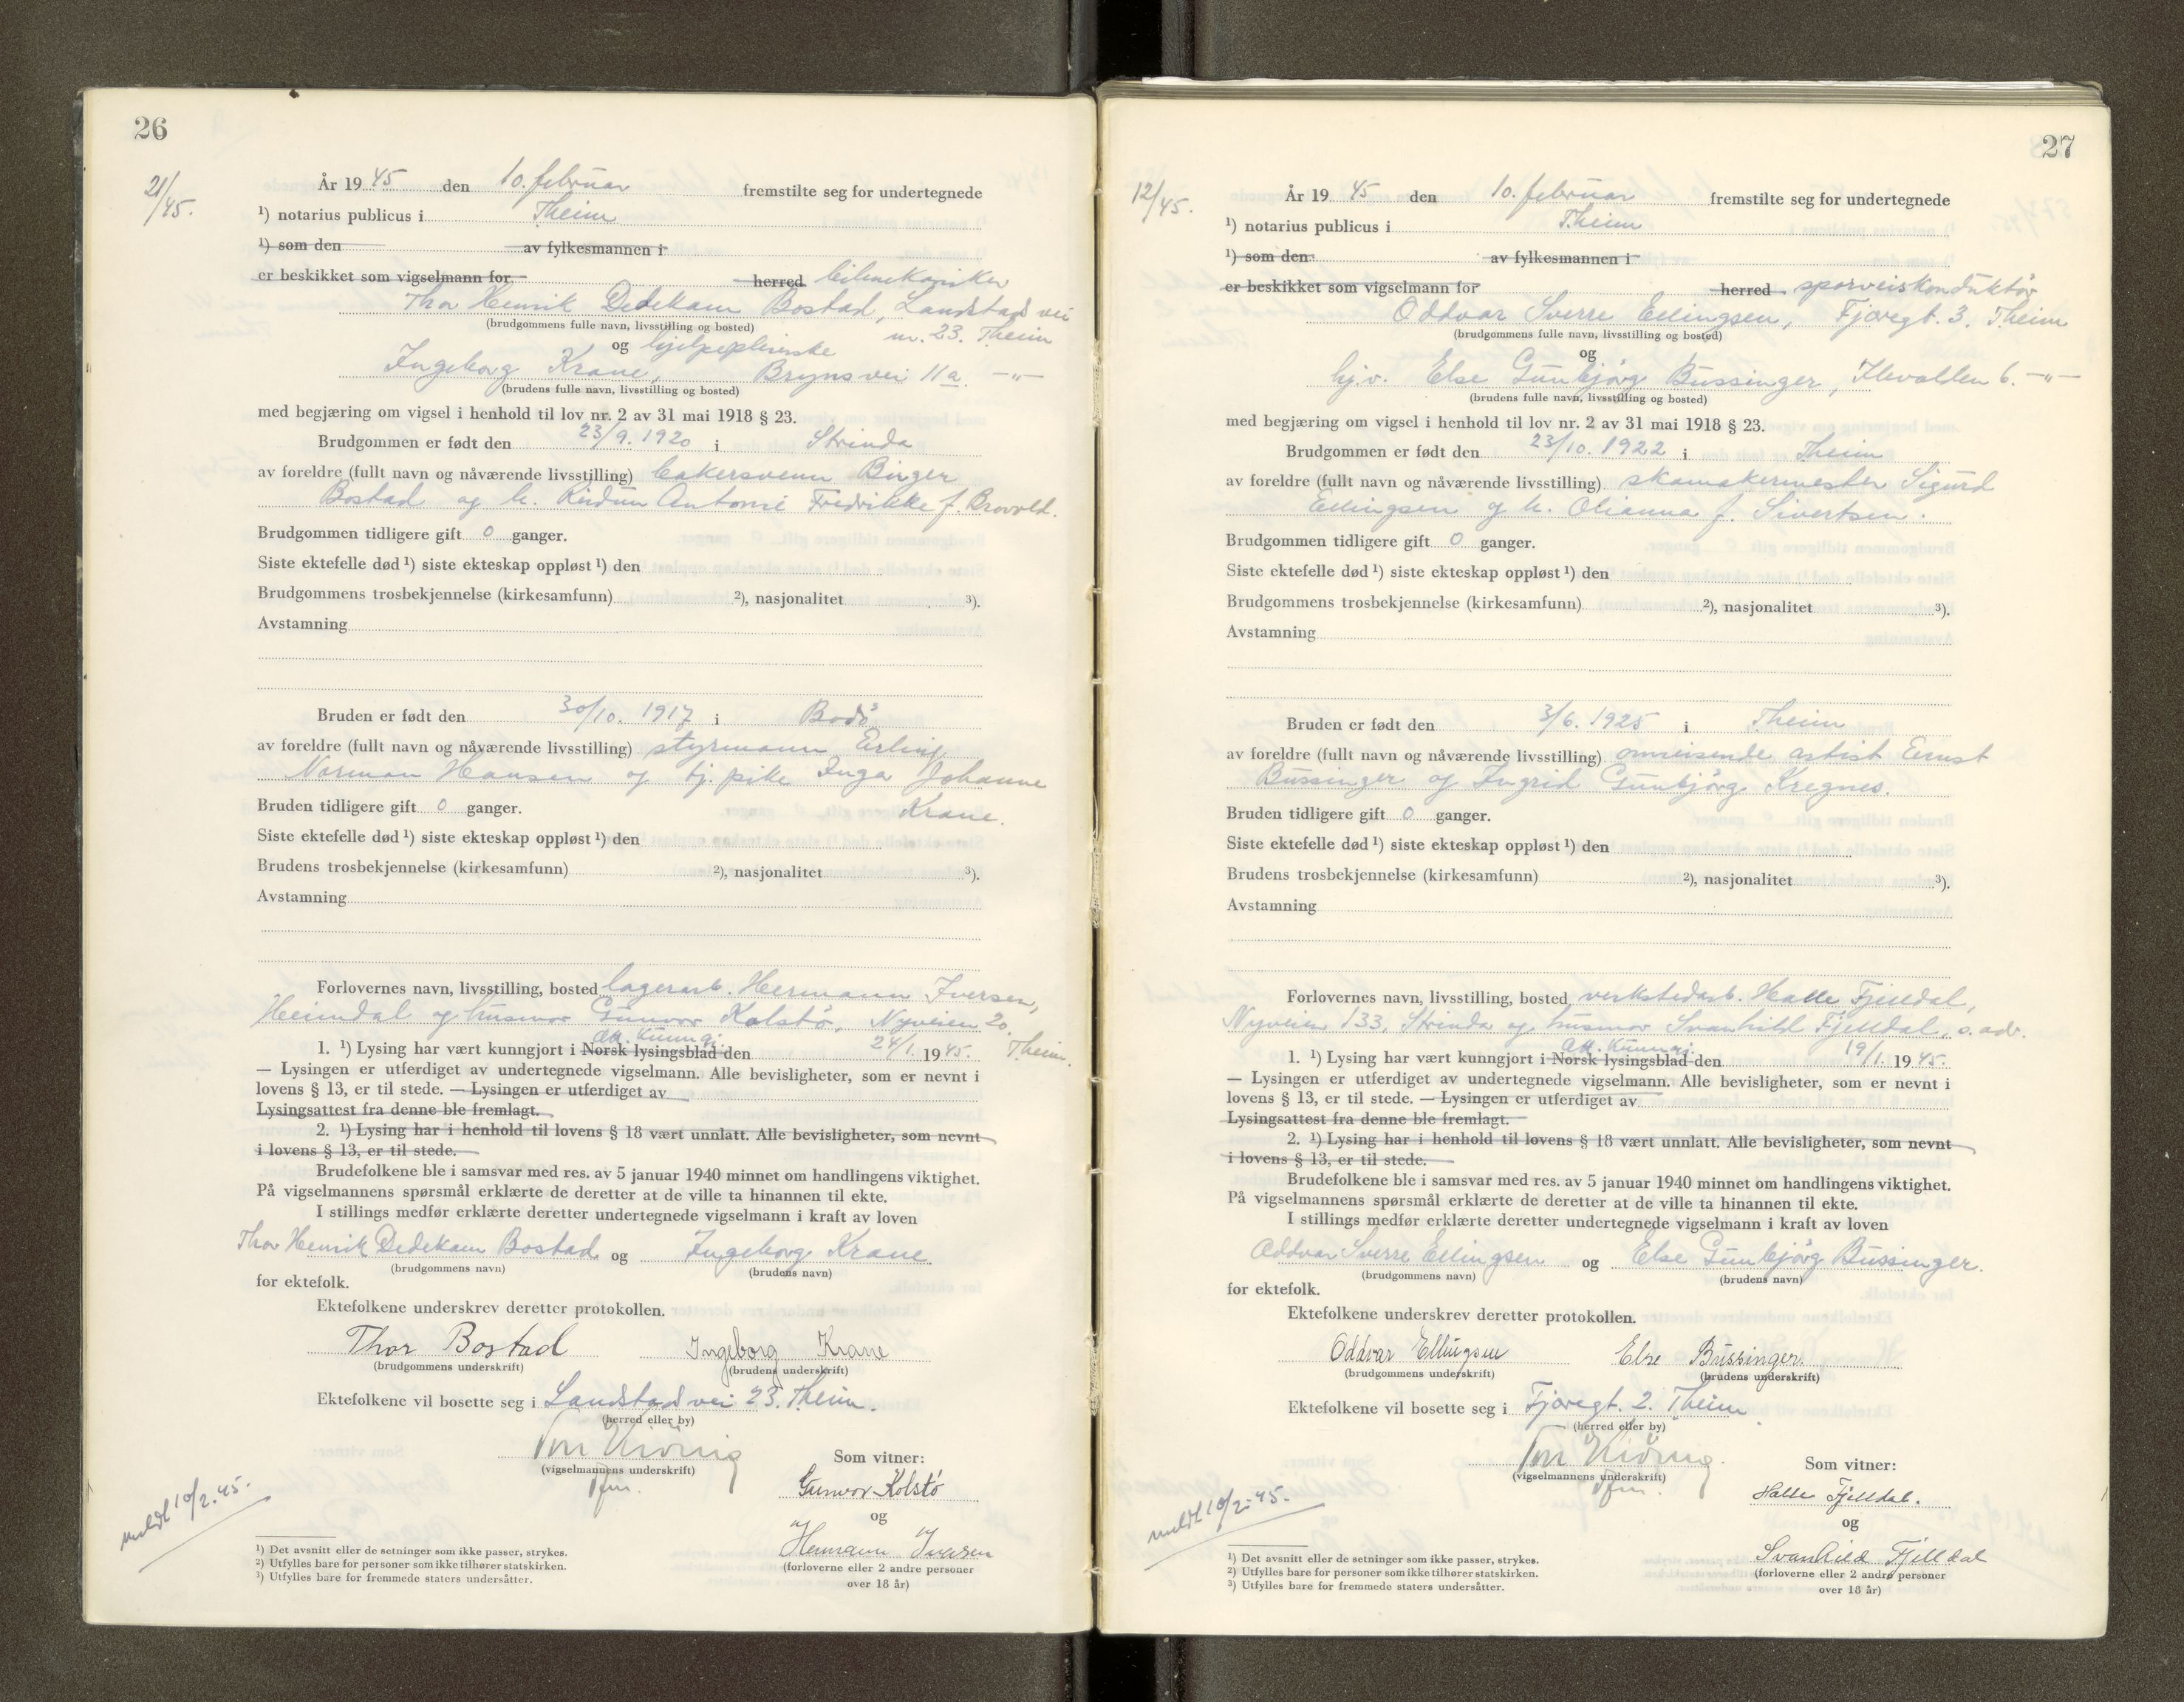 26
21/45.
År 1945 den 10. februar fremstilte seg for undertegnede
¹) notarius publicus i Theim
¹) som den av fylkesmannen i
er beskikket som vigselmann for herred bilmekaniker
Thor Henrik Dedekam Bostad, Landstads vei
nr. 23. Theim
(brudgommens fulle navn, livsstilling og bosted)
og hjelpepleierske
Ingeborg Krane, Brynsvei 11a. —"—
(brudens fulle navn, livsstilling og bosted)
med begjæring om vigsel i henhold til lov nr. 2 av 31 mai 1918 § 23.
Brudgommen er født den 23/9. 1920 i Strinda
av foreldre (fullt navn og nåværende livsstilling) bakersvenn Birger
Bostad og h. Reidun Antonie Fredrikke f. Brovold.
Brudgommen tidligere gift 0 ganger.
Siste ektefelle død ¹) siste ekteskap oppløst ¹) den
Brudgommens trosbekjennelse (kirkesamfunn) ²), nasjonalitet ³).
Avstamning
Bruden er født den 30/10. 1917 i Bodö
av foreldre (fullt navn og nåværende livsstilling) styrmann Erling
Norman Hansen og tj. pike Inga Johanne
Krane.
Bruden tidligere gift 0 ganger.
Siste ektefelle død ¹) siste ekteskap oppløst ¹) den
Brudens trosbekjennelse (kirkesamfunn) ²), nasjonalitet ³).
Avstamning
Forlovernes navn, livsstilling, bosted lagerarb. Hermann Iversen,
Heimdal og husmor Gunvor Kolstö, Nyveien 20.
Theim.
1. ¹) Lysing har vært kunngjort i Norsk lysingsblad den 24/1. 1945.
— Lysingen er utferdiget av undertegnede vigselmann. Alle bevisligheter, som er nevnt i
lovens § 13, er til stede. — Lysingen er utferdiget av
Lysingsattest fra denne ble fremlagt.
2. ¹) Lysing har i henhold til lovens § 18 vært unnlatt. Alle bevisligheter, som nevnt
i lovens § 13, er til stede.
Brudefolkene ble i samsvar med res. av 5 januar 1940 minnet om handlingens viktighet.
På vigselmannens spørsmål erklærte de deretter at de ville ta hinannen til ekte.
I stillings medfør erklærte deretter undertegnede vigselmann i kraft av loven
Thor Henrik Dedekam Bostad og Ingeborg Krane
(brudgommens navn) (brudens navn)
for ektefolk.
Ektefolkene underskrev deretter protokollen.
Thor Bostad Ingeborg Krane
(brudgommens underskrift) (brudens underskrift)
Ektefolkene vil bosette seg i Landstads vei 23. Theim.
(herred eller by)
(vigselmannens underskrift)
Som vitner:
Gunvor Kolstö
og
Hermann Iversen
(forloverne eller 2 andre personer
over 18 år)
meldt 10/2. 45.
¹) Det avsnitt eller de setninger som ikke passer, strykes.
²) Utfylles bare for personer som ikke tilhører statskirken.
³) Utfylles bare for fremmede staters undersåtter.
27
12/45.
År 1945 den 10. februar fremstilte seg for undertegnede
¹) notarius publicus i Theim
¹) som den av fylkesmannen i
er beskikket som vigselmann for herred sporveiskonduktör
Oddvar Sverre Ellingsen, Fjæregt. 3. Theim
(brudgommens fulle navn, livsstilling og bosted)
og
hj.v. Else Gunbjörg Bussinger, Ilevollen 6. —"—
(brudens fulle navn, livsstilling og bosted)
med begjæring om vigsel i henhold til lov nr. 2 av 31 mai 1918 § 23.
Brudgommen er født den 23/10. 1922 i Theim
av foreldre (fullt navn og nåværende livsstilling) skomakermester Sigurd
Ellingsen og h. Olianna f. Sivertsen.
Brudgommen tidligere gift 0 ganger.
Siste ektefelle død ¹) siste ekteskap oppløst ¹) den
Brudgommens trosbekjennelse (kirkesamfunn) ²), nasjonalitet ³).
Avstamning
Bruden er født den 3/6. 1925 i Theim
av foreldre (fullt navn og nåværende livsstilling) omreisende artist Ernst
Bussinger og Ingrid Gunbjörg Kregnes.
Bruden tidligere gift 0 ganger.
Siste ektefelle død ¹) siste ekteskap oppløst ¹) den
Brudens trosbekjennelse (kirkesamfunn) ²), nasjonalitet ³).
Avstamning
Forlovernes navn, livsstilling, bosted verkstedarb. Halle Fjelldal,
Nyveien 133, Strinda og husmor Svanhild Fjelldal, s. adr.
1. ¹) Lysing har vært kunngjort i Norsk lysingsblad den 19/1. 1945.
— Lysingen er utferdiget av undertegnede vigselmann. Alle bevisligheter, som er nevnt i
lovens § 13, er til stede. — Lysingen er utferdiget av
Lysingsattest fra denne ble fremlagt.
2. ¹) Lysing har i henhold til lovens § 18 vært unnlatt. Alle bevisligheter, som nevnt
i lovens § 13, er til stede.
Brudefolkene ble i samsvar med res. av 5 januar 1940 minnet om handlingens viktighet.
På vigselmannens spørsmål erklærte de deretter at de ville ta hinannen til ekte.
I stillings medfør erklærte deretter undertegnede vigselmann i kraft av loven
Oddvar Sverre Ellingsen og Else Gunbjörg Bussinger.
(brudgommens navn) (brudens navn)
for ektefolk.
Ektefolkene underskrev deretter protokollen.
Oddvar Ellingsen Else Bussinger.
(brudgommens underskrift) (brudens underskrift)
Ektefolkene vil bosette seg i Fjæregt. 2. Theim
(herred eller by)
(vigselmannens underskrift)
Som vitner:
Halle Fjelldal.
og
Svanhild Fjelldal
(forloverne eller 2 andre personer
over 18 år)
meldt 10/2-45.
¹) Det avsnitt eller de setninger som ikke passer, strykes.
²) Utfylles bare for personer som ikke tilhører statskirken.
³) Utfylles bare for fremmede staters undersåtter.